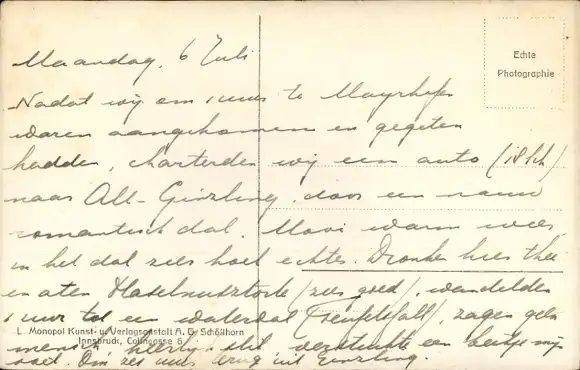 Echte
Photographie
Maandag, 6 Juli
Nadat wij om 1 uur te Mayrhofen
waren aangekomen en gegeten
hadden, charterden wij een auto (18 Sch)
naar All-Ginzling, door een nauw
romantisch dal. Mooi warm weer,
in het dal zeer koel echter. Dronken hier thee
en aten Haselnusstorte (zeer goed), wandelden
1 uur tot een waterval (Teufelsfall), zagen geen
mensch, heerlijk stil, verstuikte een beetje mijn
voet. Om zes uur terug uit Ginzling.
L. Monopol Kunst- u. Verlagsanstalt A. G. Schöllhorn
Innsbruck, Colingasse 6